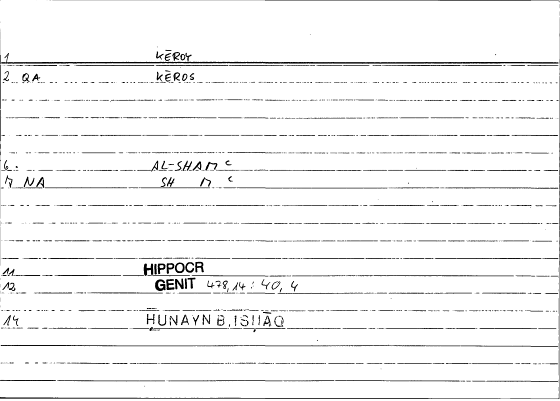 1 KĒROY
2 QA KĒROS
6. AL-SHAM c
7 NA SH M c
11 HIPPOCR
12 GENIT 478,14 : 40, 4
14 ḤUNAYN B. ISḤĀQ